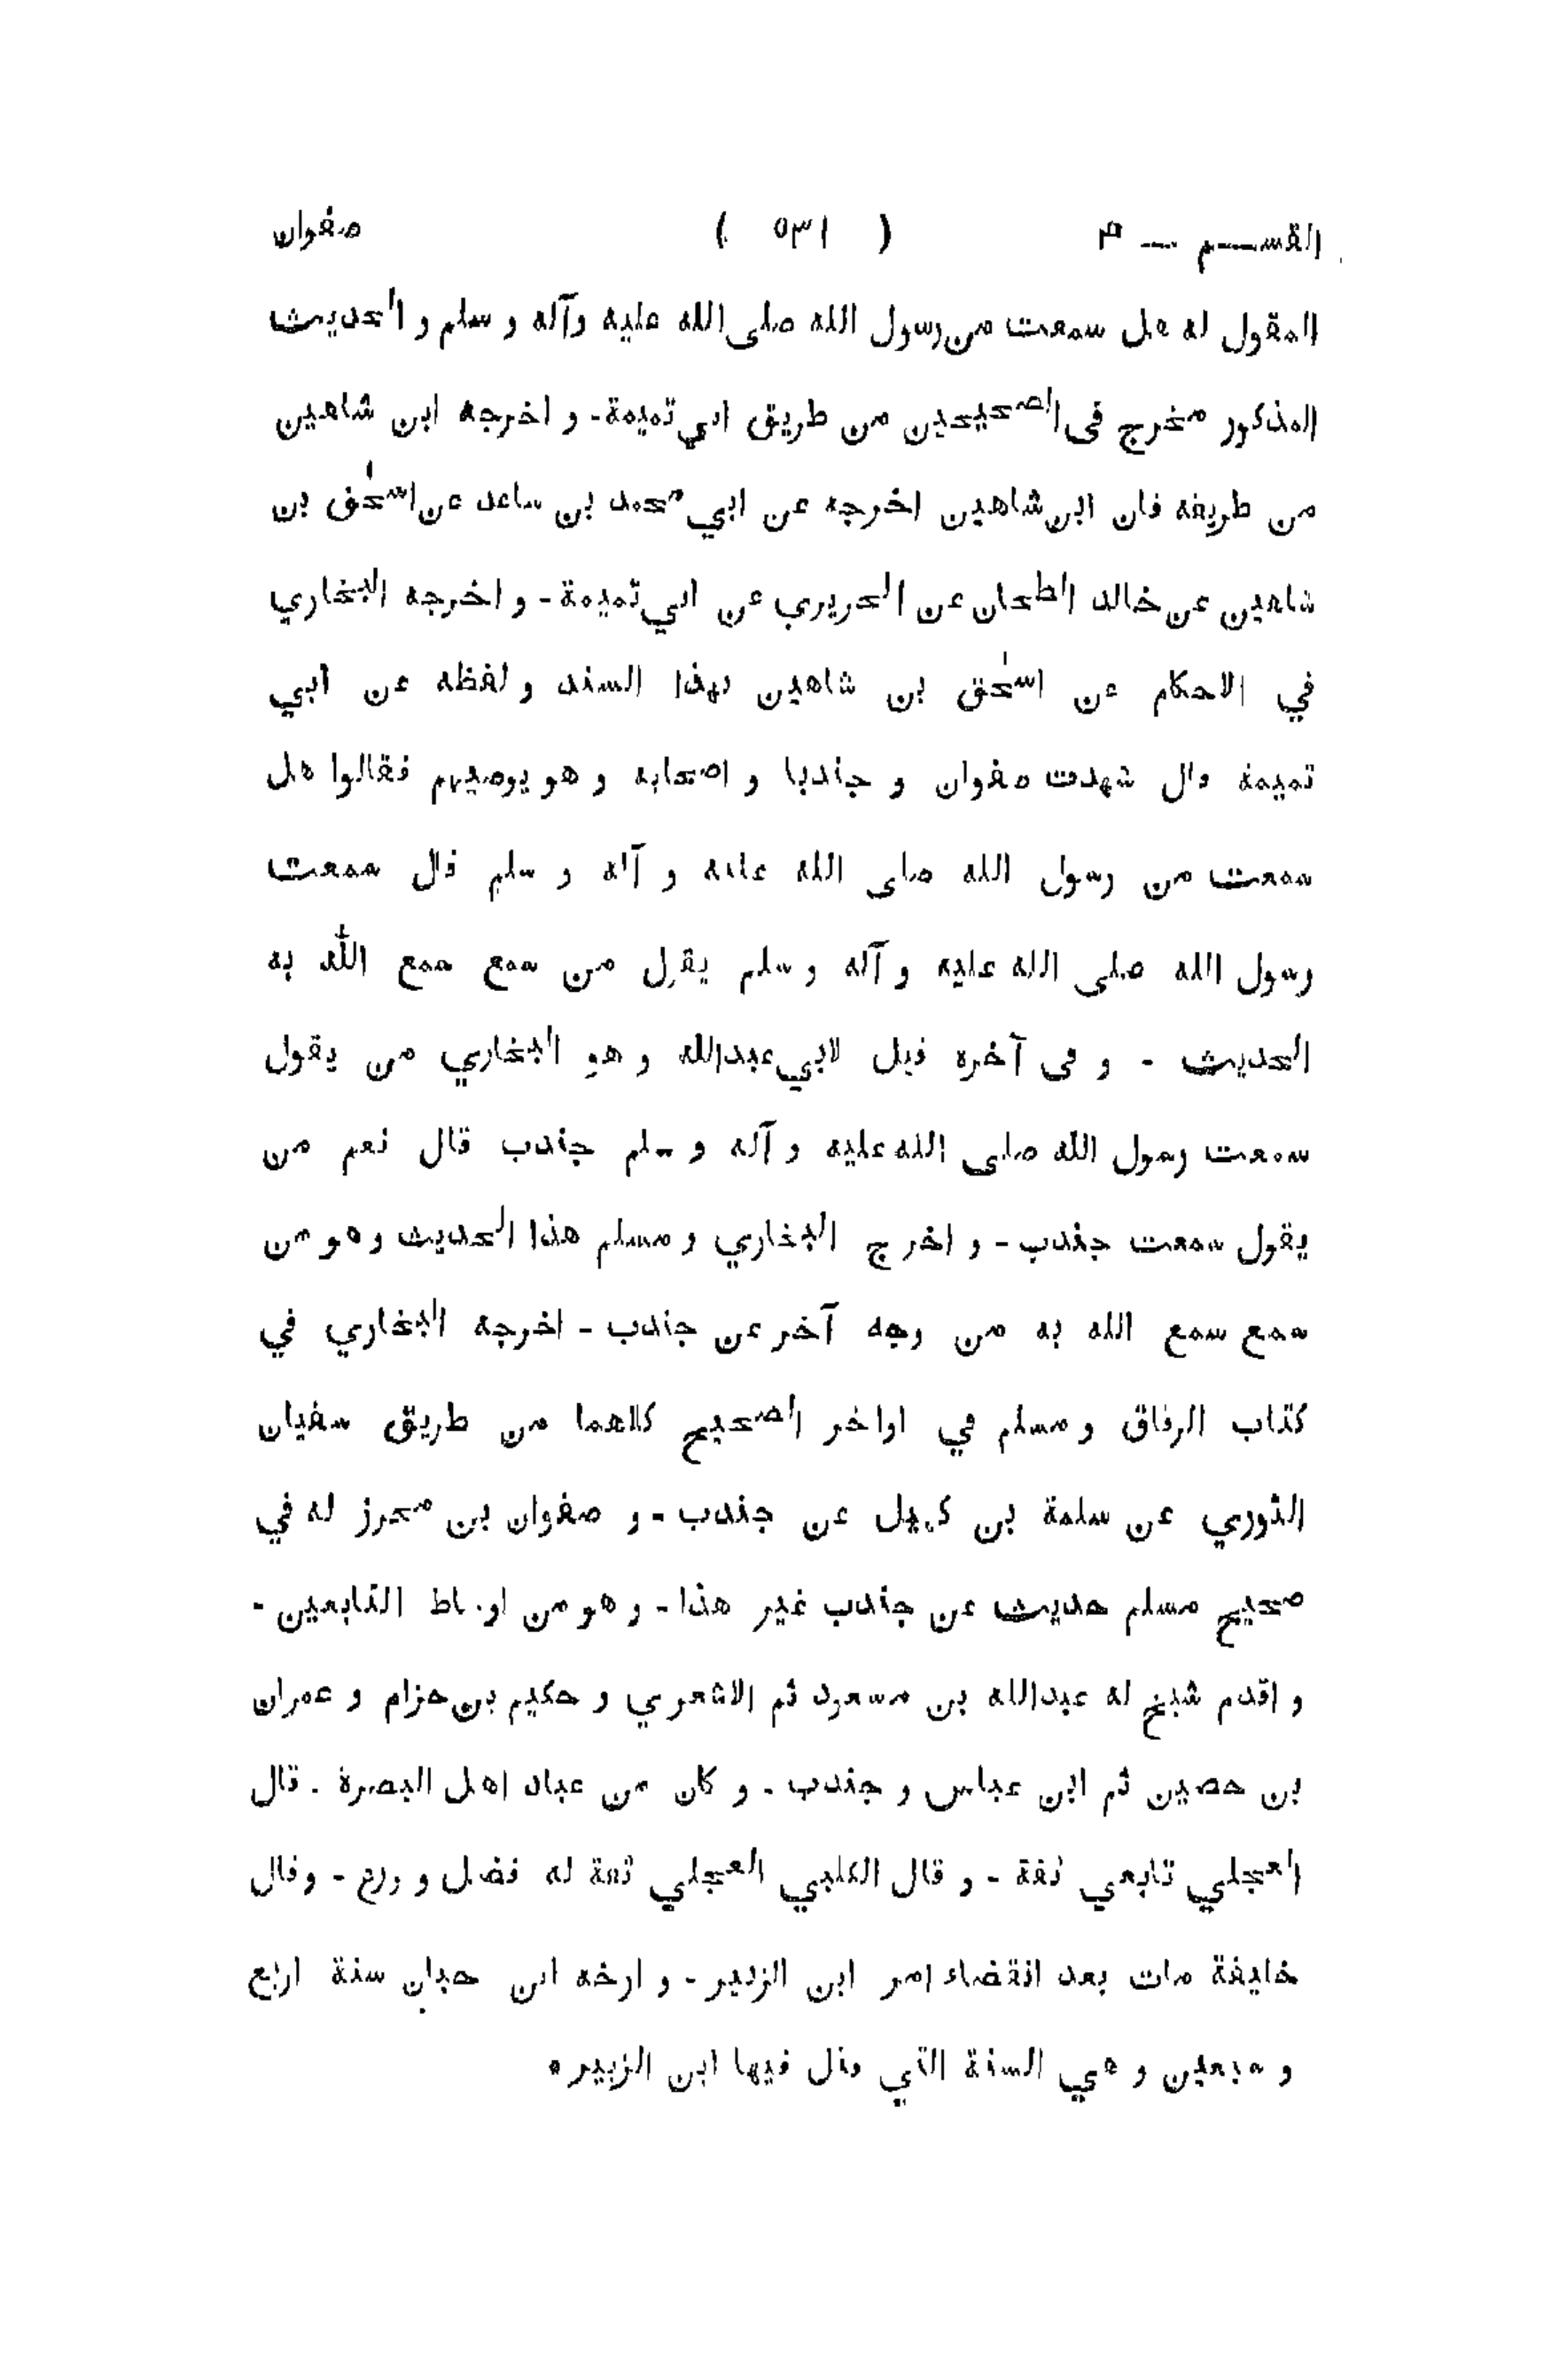 القسم — ۴ ( ٥٣١ ) صفوان
المقول له هل سمعت من رسول الله صلى الله عليه وآله و سلم و الحديث
المذكور مخرج فى الصحيحين من طريق ابي تميمة - و اخرجه ابن شاهين
من طريقه فان ابن شاهين اخرجه عن ابي محمد بن ساعد عن اسحٰق بن
شاهين عن خالد الطحان عن الحريري عن ابي تميمة - و اخرجه البخاري
في الاحكام عن اسحٰق بن شاهين بهذا السند و لفظه عن ابي
تميمة قال شهدت صفوان و جندبا و اصحابه و هو يوصيهم فقالوا هل
سمعت من رسول الله صلى الله عليه و آله و سلم قال سمعت
رسول الله صلى الله عليه و آله و سلم يقول من سمع سمع الله به
الحديث - و فى آخره قيل لابي عبدالله و هو البخاري من يقول
سمعت رسول الله صلى الله عليه و آله و سلم جندب قال نعم من
يقول سمعت جندب - و اخرج البخاري و مسلم هذا الحديث و هو من
سمع سمع الله به من وجه آخر عن جندب - اخرجه البخاري في
كتاب الرقاق و مسلم في اواخر الصحيح كلاهما من طريق سفيان
الثوري عن سلمة بن كهيل عن جندب - و صفوان بن محرز له في
صحيح مسلم حديث عن جندب غير هذا - و هو من اوساط التابعين -
و اقدم شيخ له عبدالله بن مسعود ثم الاشعري و حكيم بن حزام و عمران
بن حصين ثم ابن عباس و جندب - و كان من عباد اهل البصرة . قال
العجلي تابعي ثقة - و قال الكلبي العجلي ثقة له فضل و ورع - وقال
خليفة مات بعد انقضاء امر ابن الزبير - و ارخه ابن حبان سنة اربع
و سبعين و هي السنة التي قتل فيها ابن الزبير ه